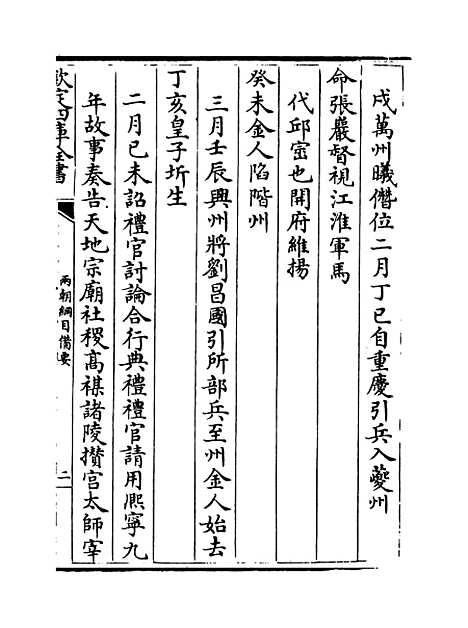 戍萬州曦僭位二月丁巳自重慶引兵入夔州
命張巖督視江淮軍馬
代邱崈也開府維揚
癸未金人䧟階州
三月壬辰興州將劉昌國引所部兵至州金人始去
丁亥皇子圻生
二月已未詔禮官討論合行典禮禮官請用熈寧九
年故事奏告天地宗廟社稷髙禖諸陵攅宫太師宰
欽定四庫全書
兩朝綱目備要
二